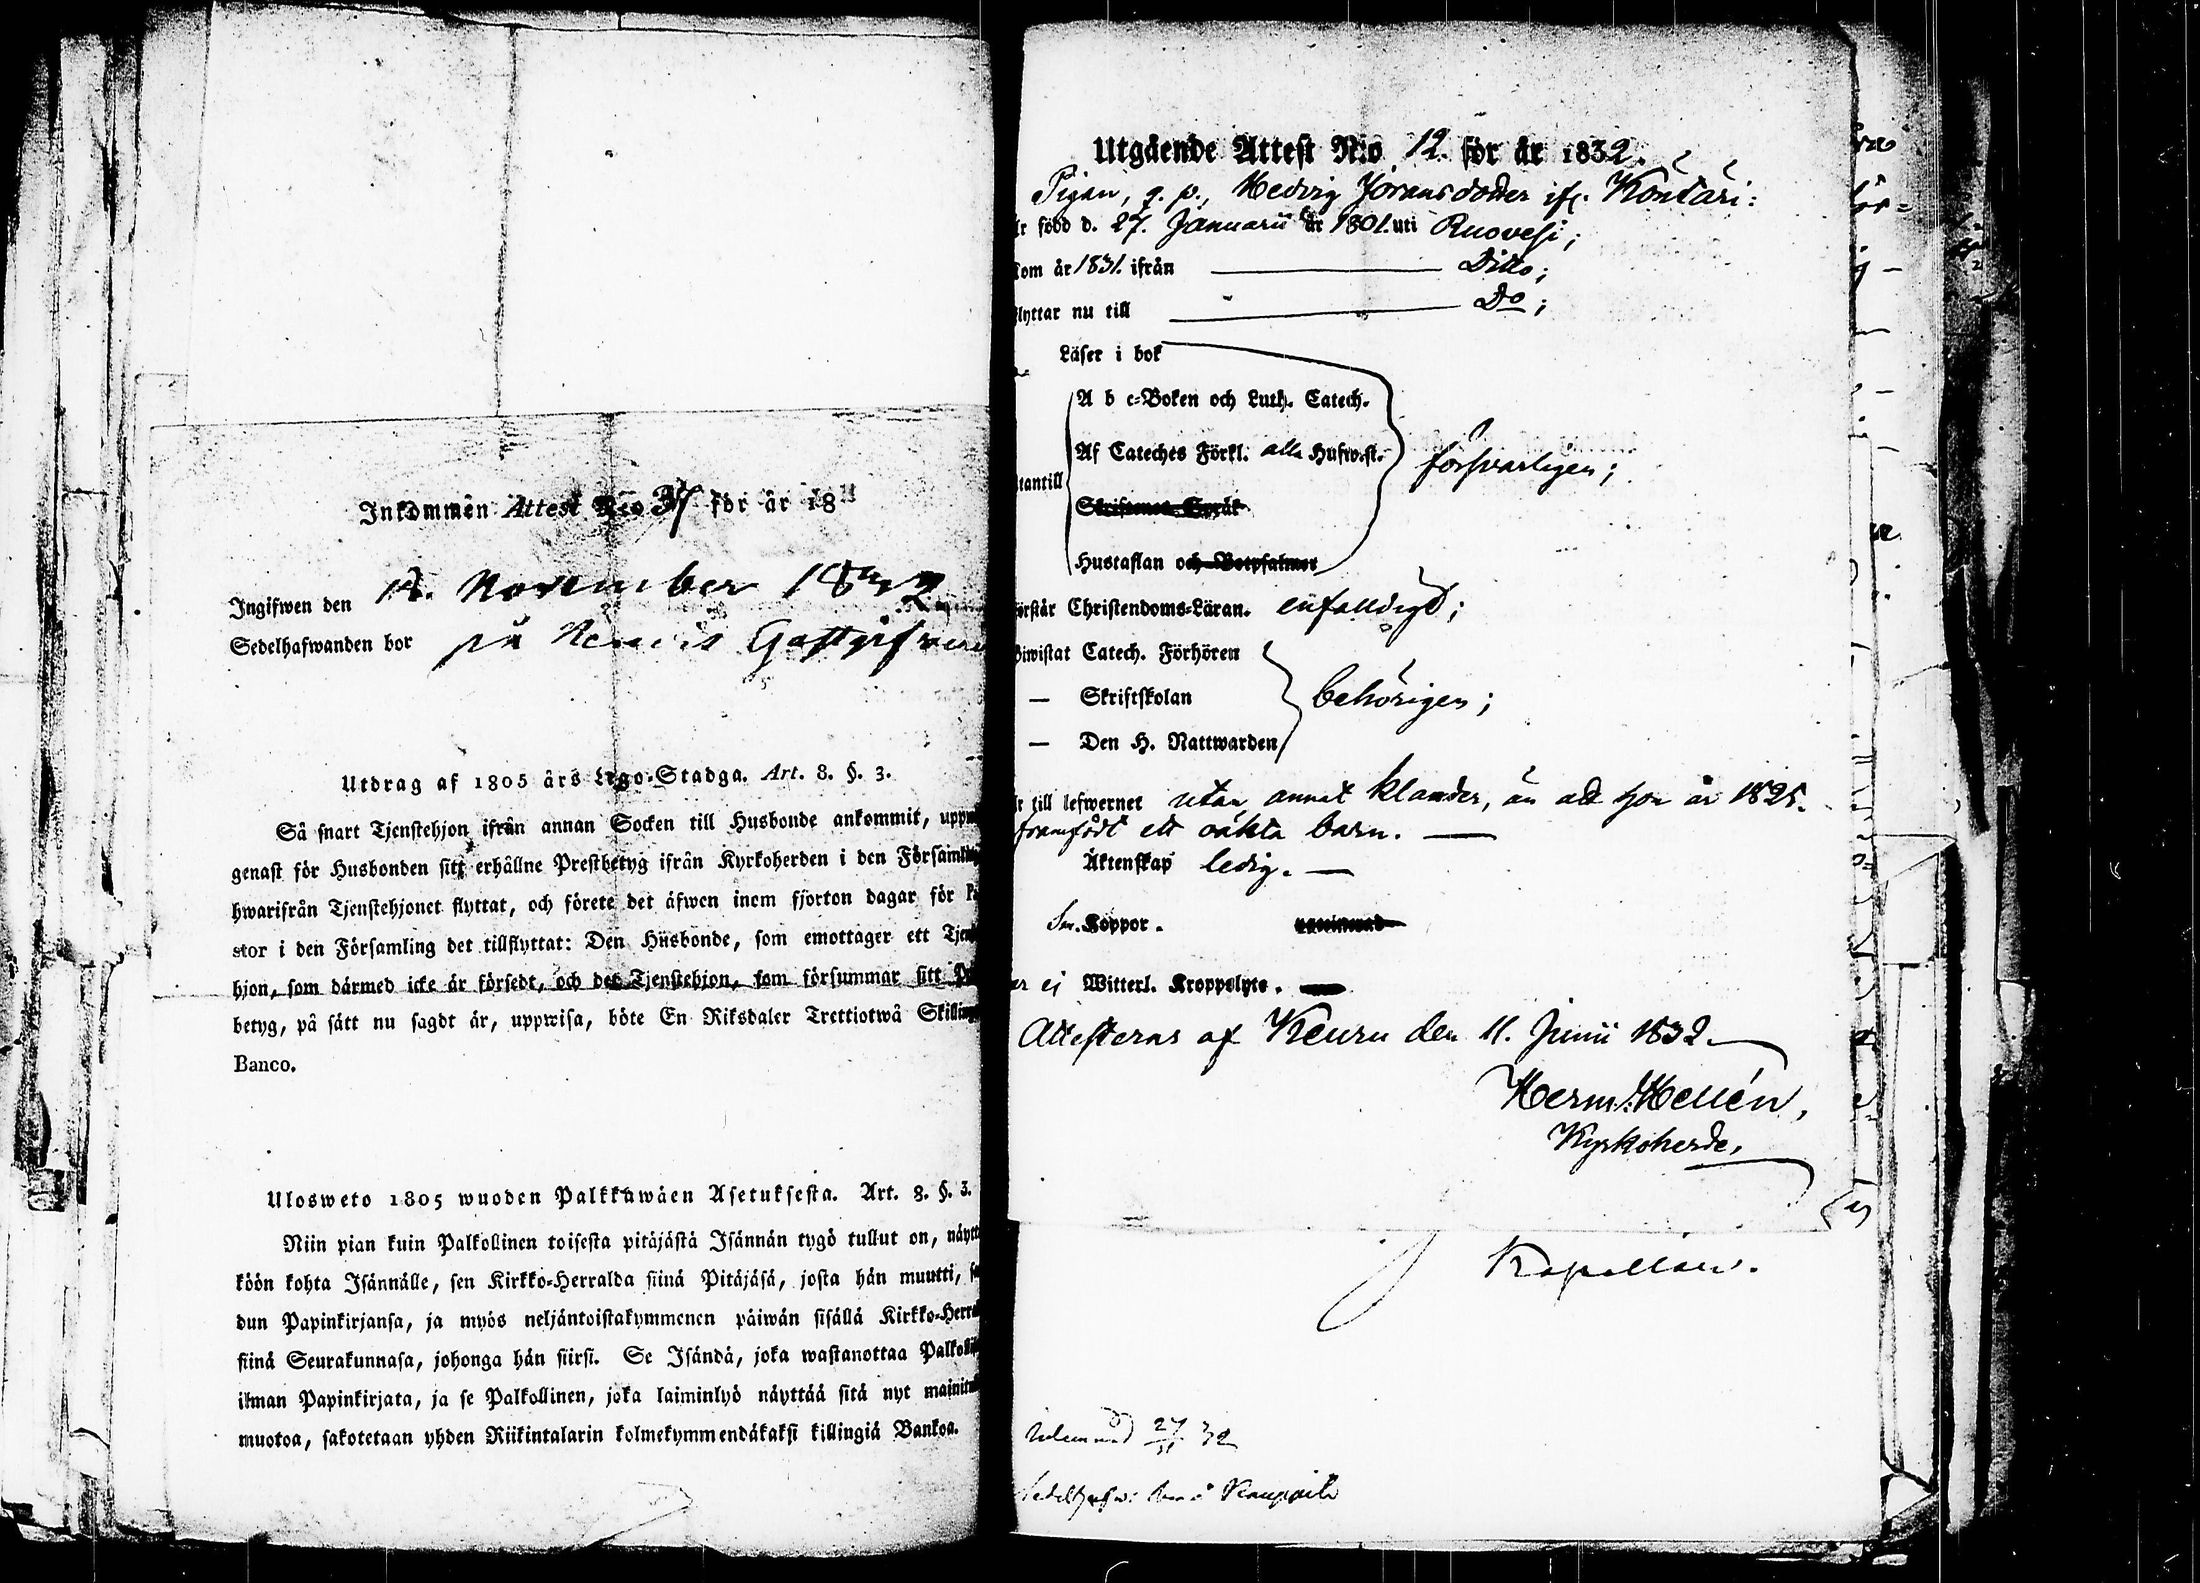 Inkommen Attest N:o 37 för år 18
Ingifwen den 18. November 1832
Sedelhafwanden bor på Gästgifveri
Utdrag af 1805 års Lego-Stadga. Art. 8. §. 3.
Så snart Tjenstehjon ifrån annan Socken till Husbonde ankommit, uppw
genast för Husbonden sitt erhållne Prestbetyg ifrån Kyrkoherden i den Församling
hwarifrån Tjenstehjonet flyttat, och förete det äfwen inom fjorton dagar för Pa
stor i den Församling det tillflyttat: Den Husbonde, som emottager ett Tjenste
hjon, som därmed icke är försedt, och det Tjenstehjon, som försummar sitt Pre
betyg, på sätt nu sagdt är, uppwisa, böte En Riksdaler Trettiotwå Skilling
Banco.
Ulosweto 1805 wuoden Palkkawäen Asetuksesta. Art. 8. §. 3.
Niin pian kuin Palkollinen toisesta pitäjästä Isännän tygö tullut on, näyttä
köön kohta Isännälle, sen Kirkko-Herralda siinä Pitäjäsä, josta hän muutti, sa
dun Papinkirjansa, ja myös neljäntoistakymmenen päiwän sisällä Kirkko-Herra
siinä Seurakunnasa, johonga hän siirsi. Se Isändä, joka wastanottaa Palkolli
ilman Papinkirjata, ja se Palkollinen, joka laiminlyö näyttää sitä nyt mainitu
muotoa, sakotetaan yhden Riikintalarin kolmekymmendäkaksi killingiä Bankoa.
Utgående Attest N:o 12. för år 1832.
Pigan, q. p., Hedvig Jöransdotter ifr. Köntäri:
är född d. 27. Januarii år 1801. uti Ruovesi;
kom år 1831. ifrån Ditto;
flyttar nu till Do;
Läser i bok
A b c-Boken och Luth. Catech.
Af Cateches Förkl. alla Hufwst. försvarligen;
utantill
Skriftenes Språk
Hustaflan och Botpsalmer
förstår Christendoms-Läran. enfaldigt;
Biwistat Catech. Förhören
— Skriftskolan behörigen;
— Den H. Nattwarden
är till lefwernet utan annat klander, än att hon år 1825.
framfödt ett oäkta barn. —
Äktenskap ledig. —
Koppor.
ej Witterl. Kroppslyte.
Attesteras af Keuru den 11. Junii 1832.
Herm. Hellén,
Kyrkoherde.
Kapellan.
27/11 32
Sedelhafw: